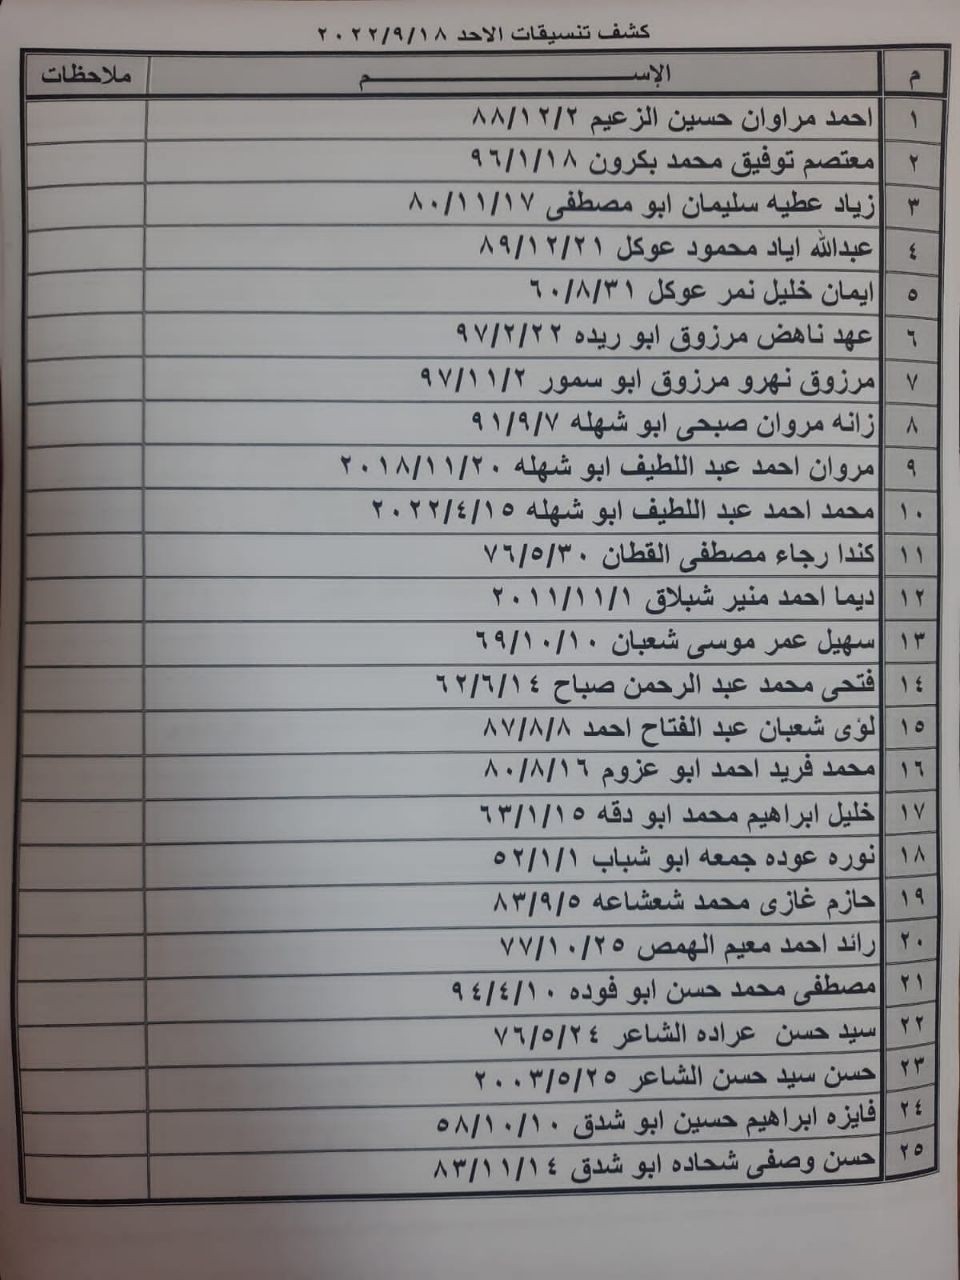 كشف تنسيقات الاحد ٢٠٢٢/٩/١٨
م الإســـم ملاحظات
١ احمد مراوان حسين الزعيم ٨٨/١٢/٢
٢ معتصم توفيق محمد بكرون ٩٦/١/١٨
٣ زياد عطيه سليمان ابو مصطفى ٨٠/١١/١٧
٤ عبدالله اياد محمود عوكل ٨٩/١٢/٢١
٥ ايمان خليل نمر عوكل ٦٠/٨/٣١
٦ عهد ناهض مرزوق ابو ريده ٩٧/٢/٢٢
٧ مرزوق نهرو مرزوق ابو سمور ٩٧/١١/٢
٨ زانه مروان صبحى ابو شهله ٩١/٩/٧
٩ مروان احمد عبد اللطيف ابو شهله ٢٠١٨/١١/٢٠
١٠ محمد احمد عبد اللطيف ابو شهله ٢٠٢٢/٤/١٥
١١ كندا رجاء مصطفى القطان ٧٦/٥/٣٠
١٢ ديما احمد منير شبلاق ٢٠١١/١١/١
١٣ سهيل عمر موسى شعبان ٦٩/١٠/١٠
١٤ فتحى محمد عبد الرحمن صباح ٦٢/٦/١٤
١٥ لؤى شعبان عبد الفتاح احمد ٨٧/٨/٨
١٦ محمد فريد احمد ابو عزوم ٨٠/٨/١٦
١٧ خليل ابراهيم محمد ابو دقه ٦٣/١/١٥
١٨ نوره عوده جمعه ابو شباب ٥٢/١/١
١٩ حازم غازى محمد شعشاعه ٨٣/٩/٥
٢٠ رائد احمد معيم الهمص ٧٧/١٠/٢٥
٢١ مصطفى محمد حسن ابو فوده ٩٤/٤/١٠
٢٢ سيد حسن عراده الشاعر ٧٦/٥/٢٤
٢٣ حسن سيد حسن الشاعر ٢٠٠٣/٥/٢٥
٢٤ فايزه ابراهيم حسين ابو شدق ٥٨/١٠/١٠
٢٥ حسن وصفى شحاده ابو شدق ٨٣/١١/١٤